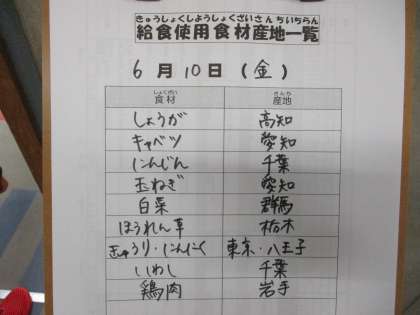 きゅうしょくしようしょくざいさんちいちらん
給食使用食材産地一覧
6月10日(金)
しょくざい さんち
食材 産地
しょうが 高知
キャベツ 愛知
にんじん 千葉
玉ねぎ 愛知
白菜 群馬
ほうれん草 栃木
きゅうり・にんにく 東京・八王子
いわし 千葉
鶏肉 岩手